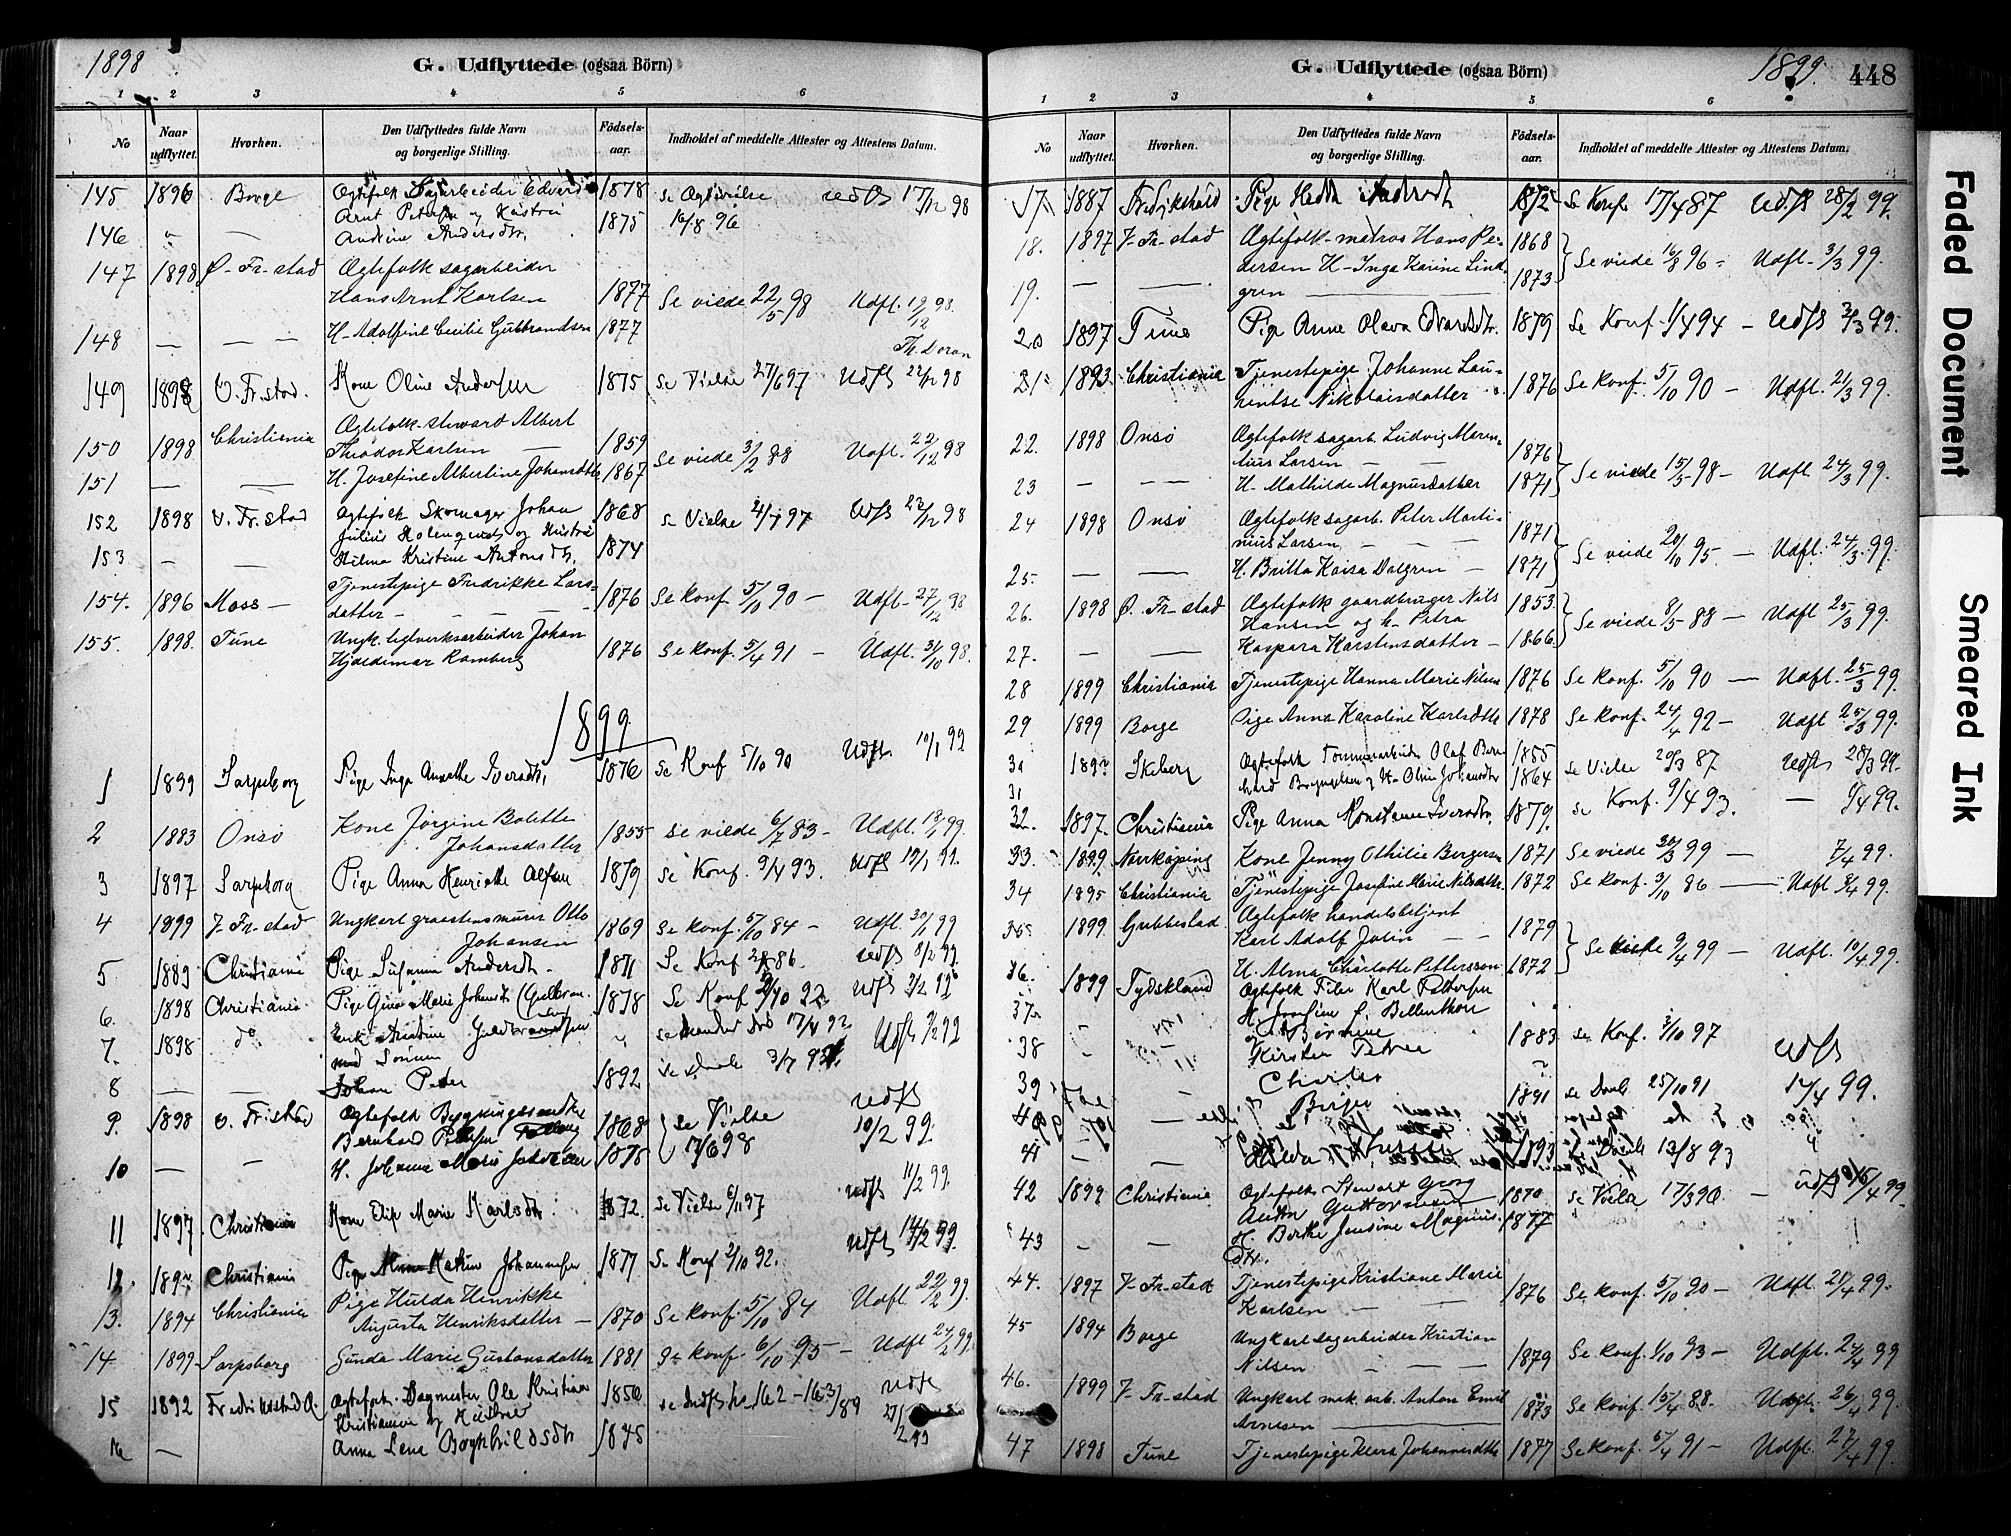 1898
G. Udflyttede (ogsaa Börn)
1 2 3 4 5 6
No
Naar udflyttet.
Hvorhen.
Den Udflyttedes fulde Navn og borgerlige Stilling.
Födsels-aar.
Indholdet af meddelte Attester og Attestens Datum.
145 1896 Borge Ægtefolk Sagarbeider Edvard 1878 Se Ægtevielse Udfl 17/12 98
Arnt Petersen og Hustru 1875 16/8 96
146 " — Andrine Andersdtr.
147 1898 Ø-Fr-stad Ægtefolk sagarbeider
Hans Arnt Karlsen 1877 Se viede 22/5 98 Udfl. 19/12 98.
148 — — — H. Adolfine Cecilie Gulbrandsen 1877
149 1898 V. Fr.stad. Kone Oline Andersen 1875 Se Vielse 27/6 97 Udfl 22/12 98
Ægtefolk steward Albert
150 1898 Christiania Theodor Karlsen — 1859 Se viede 3/2 88 Udfl. 22/12 98
151 — — H. Josefine Albertine Johansdtr 1867
152 1898 V. Fr.stad Ægtefolk Skomager Johan 1868 Se Vielse 4/7 97 Udfl 23/12 98
Julius Holmqvist og Hustru
153 — — Hilma Kristine Antonsdtr. 1874
Tjenestepige Fredrikke Lars-
154. 1896 Moss — datter — — — 1876 Se konf. 5/10 90 — Udfl. 27/12 98
155. 1898. Tune Ungk. teglverksarbeider Johan
Hjaldemar Ramberg 1876 Se konf. 5/4 91 — Udfl. 31/10 98.
1899
1 1899 Sarpsborg Pige Inga Annette Iversdtr. 1876 Se Konf 5/10 90 Udfl. 10/1 99
2 1883 Onsö Kone Jörgine Bolette
Johansdatter 1855 se viede 6/7 83 — Udfl. 18/1 99.
3 1897 Sarpsborg Pige Anna Henriette Olsen 1879 se Konf. 9/4 93. Udfl 19/1 99.
4 1899 V-Fr-stad Ungkarl graastensmurer Otto
Johansen 1869 Se konf. 5/10 84 — Udfl. 30/1 99
5 1889 Christiania Pige Susanna Andersdtr. 1871 Se Konf 86. Udfl 8/2 99.
6. 1898 Christiania Pige Gina Marie Johansdtr (Gulbran- 1878 Se Konf 2/10 92 Udfl 9/2 99
7. 1898 do Enke Andrine Guldbrandsen " 17/4 92 Udfl 9/2 99
med Sönnen
8 — — Johan Peder 1892 se daab
9. 1898 V. Fr.stad Ægtefolk Bygningssnedker 1868 Se Vielse Udfl
Bernhard Petersen 17/6 98 10/2 99
10 — — H. Johanne Marie 1875
11 1897 Christiania Kone Elise Marie Karlsdtr. 1872. Se Vielse 6/11 97 Udfl 11/2 99.
12 Christiania Pige Katrin Johannesen 1877 Se Konf 2/10 92. Udfl 14/2 99.
13. 1894 Christiania Pige Hulda Henrikke
Augusta Henriksdatter — 1870 Se konf. 5/10 84 Udfl 22/2 99.
14 1899 Sarpsborg Gunda Marie Gustavsdatter 1881 Se konf. 6/10 95 — Udfl 24/2 99.
15 1892 Fredrikstad Ö. Ægtefolk. Dagmester Ole Kristian 1850 se Indfl No 162-163/89 Udfl
Kristiansen og Hustru
16 — Anna Lena Bøgehildsdtr 1845
1899. 448
G. Udflyttede (ogsaa Börn)
1 2 3 4 5 6
No
Naar udflyttet.
Hvorhen.
Den Udflyttedes fulde Navn og borgerlige Stilling.
Födsels-aar.
Indholdet af meddelte Attester og Attestens Datum.
17 1887 Fredrikshald Pige Hedda 1872 Se Konf. 17/4 87 Udfl 28/2 99.
18. 1897 V-Fr-stad Ægtefolk matros Hans Pe- 1868 Se viede 16/8 96 — Udfl. 3/3 99.
dersen H- Inga Karine Lind- 1873
19. — — gren —
20 1897 Tune Pige Anne Olava Edvardsdtr. 1879 Se Konf. 1/4 94 — Udfl 2/3 99.
21 1893. Christiania Tjenestepige Johanne Lau-
rentse Nikolaisdatter 1876 Se konf. 5/10 90 — Udfl. 21/3 99.
22. 1898 Onsö Ægtefolk sagarb. Ludvig Marin- 1876
nius Larsen — — Se viede 15/5 98 — Udfl 24/3 99.
23 — — — H. Mathilde Magnusdatter 1871
24 1898 Onsö Ægtefolk sagarb. Peter Marti- 1871
nius Larsen, — — Se viede 20/10 95. — Udfl. 24/3 99.
25 — — H. Britta Kaisa Dalgren — 1871
26. 1898 Ø. Fr-stad Ægtefolk gaardbruger Nils 1853.
Hansen og h. Petra Se viede 8/5 88 — Udfl 25/3 99.
27. — — Kaspara Karstensdatter — 1866
28 1899 Christiania Tjenestepige Hanna Marie Nilsen 1876 Se konf. 5/10 90 — Udfl. 25/3 99.
29 1899 Borge Pige Anna Karoline Karlsdtr 1878 Se konf. 24/4 92 — Udfl 25/3 99.
30 Skeberg Ægtefolk Tömmerarbeider Olaf Bern- 1855 Se Vielse 20/3 87 Udfl 28/3 99.
31 hard og H. Oline Johansdtr 1864
32. 1897. Christiania Pige Anna Konstanse Iversdtr. 1879. se Konf. 9/4 93. — 4/4 99.
33. 1899. Norrköping Kone Jenny Othilie Bergersen 1871 Se viede 30/3 99 — 7/4 99.
34 1895 Christiania Tjenestepige Josefine Marie Nilsdtr. 1872 Se konf. 3/10 86 — Udfl 8/4 99.
35 1899. Grebbestad Ægtefolk handelsbetjent
Karl Adolf Jolin — — 1879 Se viede 9/4 99 — Udfl. 10/4 99
36. H. Alma Charlotte Pettersson 1872
1899 Tydskland Ægtefolk Filer Karl Pettersen
37 H. Josefine
og Börnene
38 — Kirsten Petrea 1883 se Konf. 2/10 97 Udfl
39 Charles 14/4 99.
40 Birger 1891 se Daab 25/10 91
41 — — Hilda 1893 Daab 13/8 93
42 1899 Christiania Ægtefolk Stewart Georg 1870 se Viede 17/3 90. — Udfl 15/4 99
Anton Guttormsen
43 — — H. Berthe Jensine Magnus- 1877
dtr.
44. 1897 V-Fr-stad Tjenestepige Kristiane Marie
Karlsen — — 1876 Se konf. 5/10 90 — Udfl. 21/4 99.
45 1894 Borge Ungkarl sagarbeider Kristian
Nilsen — — 1879 Se konf. 1/10 93 — Udfl. 24/4 99
46. 1899 V-Fr-stad Ungkarl mek. arb. Anton Emil
Arnesen — 1873 Se konf. 15/4 88. Udfl. 26/4 99.
47 1898 Tune Tjenestepige Klara Johannesdtr 1877 Se konf. 5/4 91 — Udfl. 27/4 99.
Faded Document
Smeared Ink